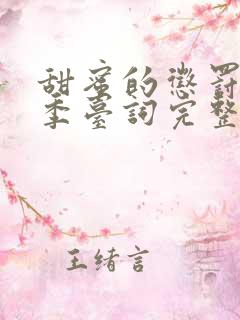 甜蜜的懲罰
季臺詞完整
王緒言